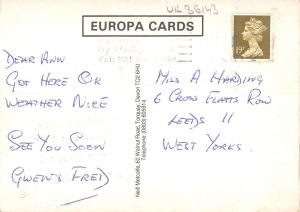 UIL 36143
EUROPA CARDS
19P
DEAR ANN
GOT HERE OK
WEATHER NICE
SEE YOU SOON
GWEN & FRED
Neill Metcalfe, 62 Walnut Road, Torquay, Devon TQ2 6HU
Telephone: (0803) 605914
MISS A HARDING
6 CROSS FLATTS ROW
LEEDS 11
WEST YORKS.